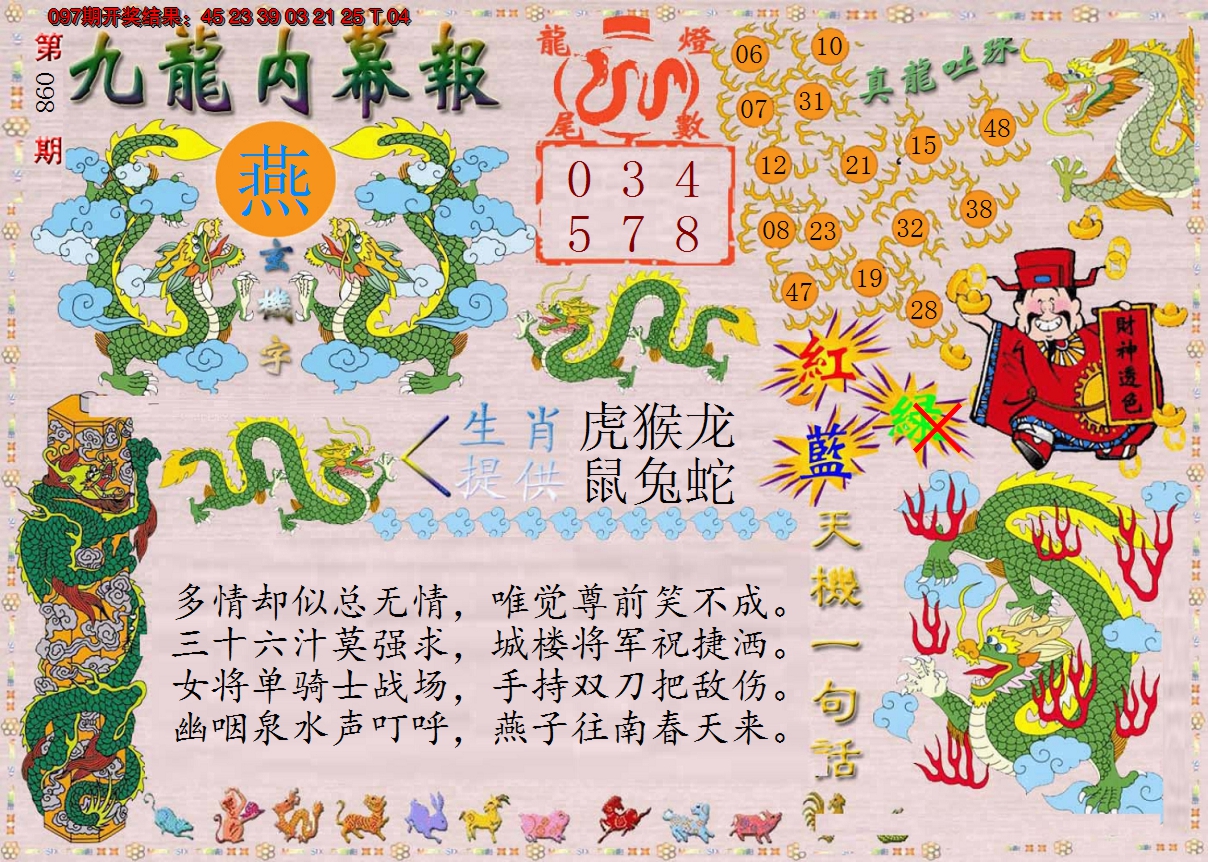 097期开奖结果：45 23 39 03 21 25 T 04
第098期
九龍内幕報
燕
玄機字
龍燈
尾數
0 3 4
5 7 8
真龍吐珠
06
10
07
31
12
21
15
48
08
23
32
38
47
19
28
財神透色
紅
綠
藍
生肖提供
虎猴龙
鼠兔蛇
天機一句話
多情却似总无情，唯觉尊前笑不成。
三十六汁莫强求，城楼将军祝捷洒。
女将单骑士战场，手持双刀把敌伤。
幽咽泉水声叮呼，燕子往南春天来。